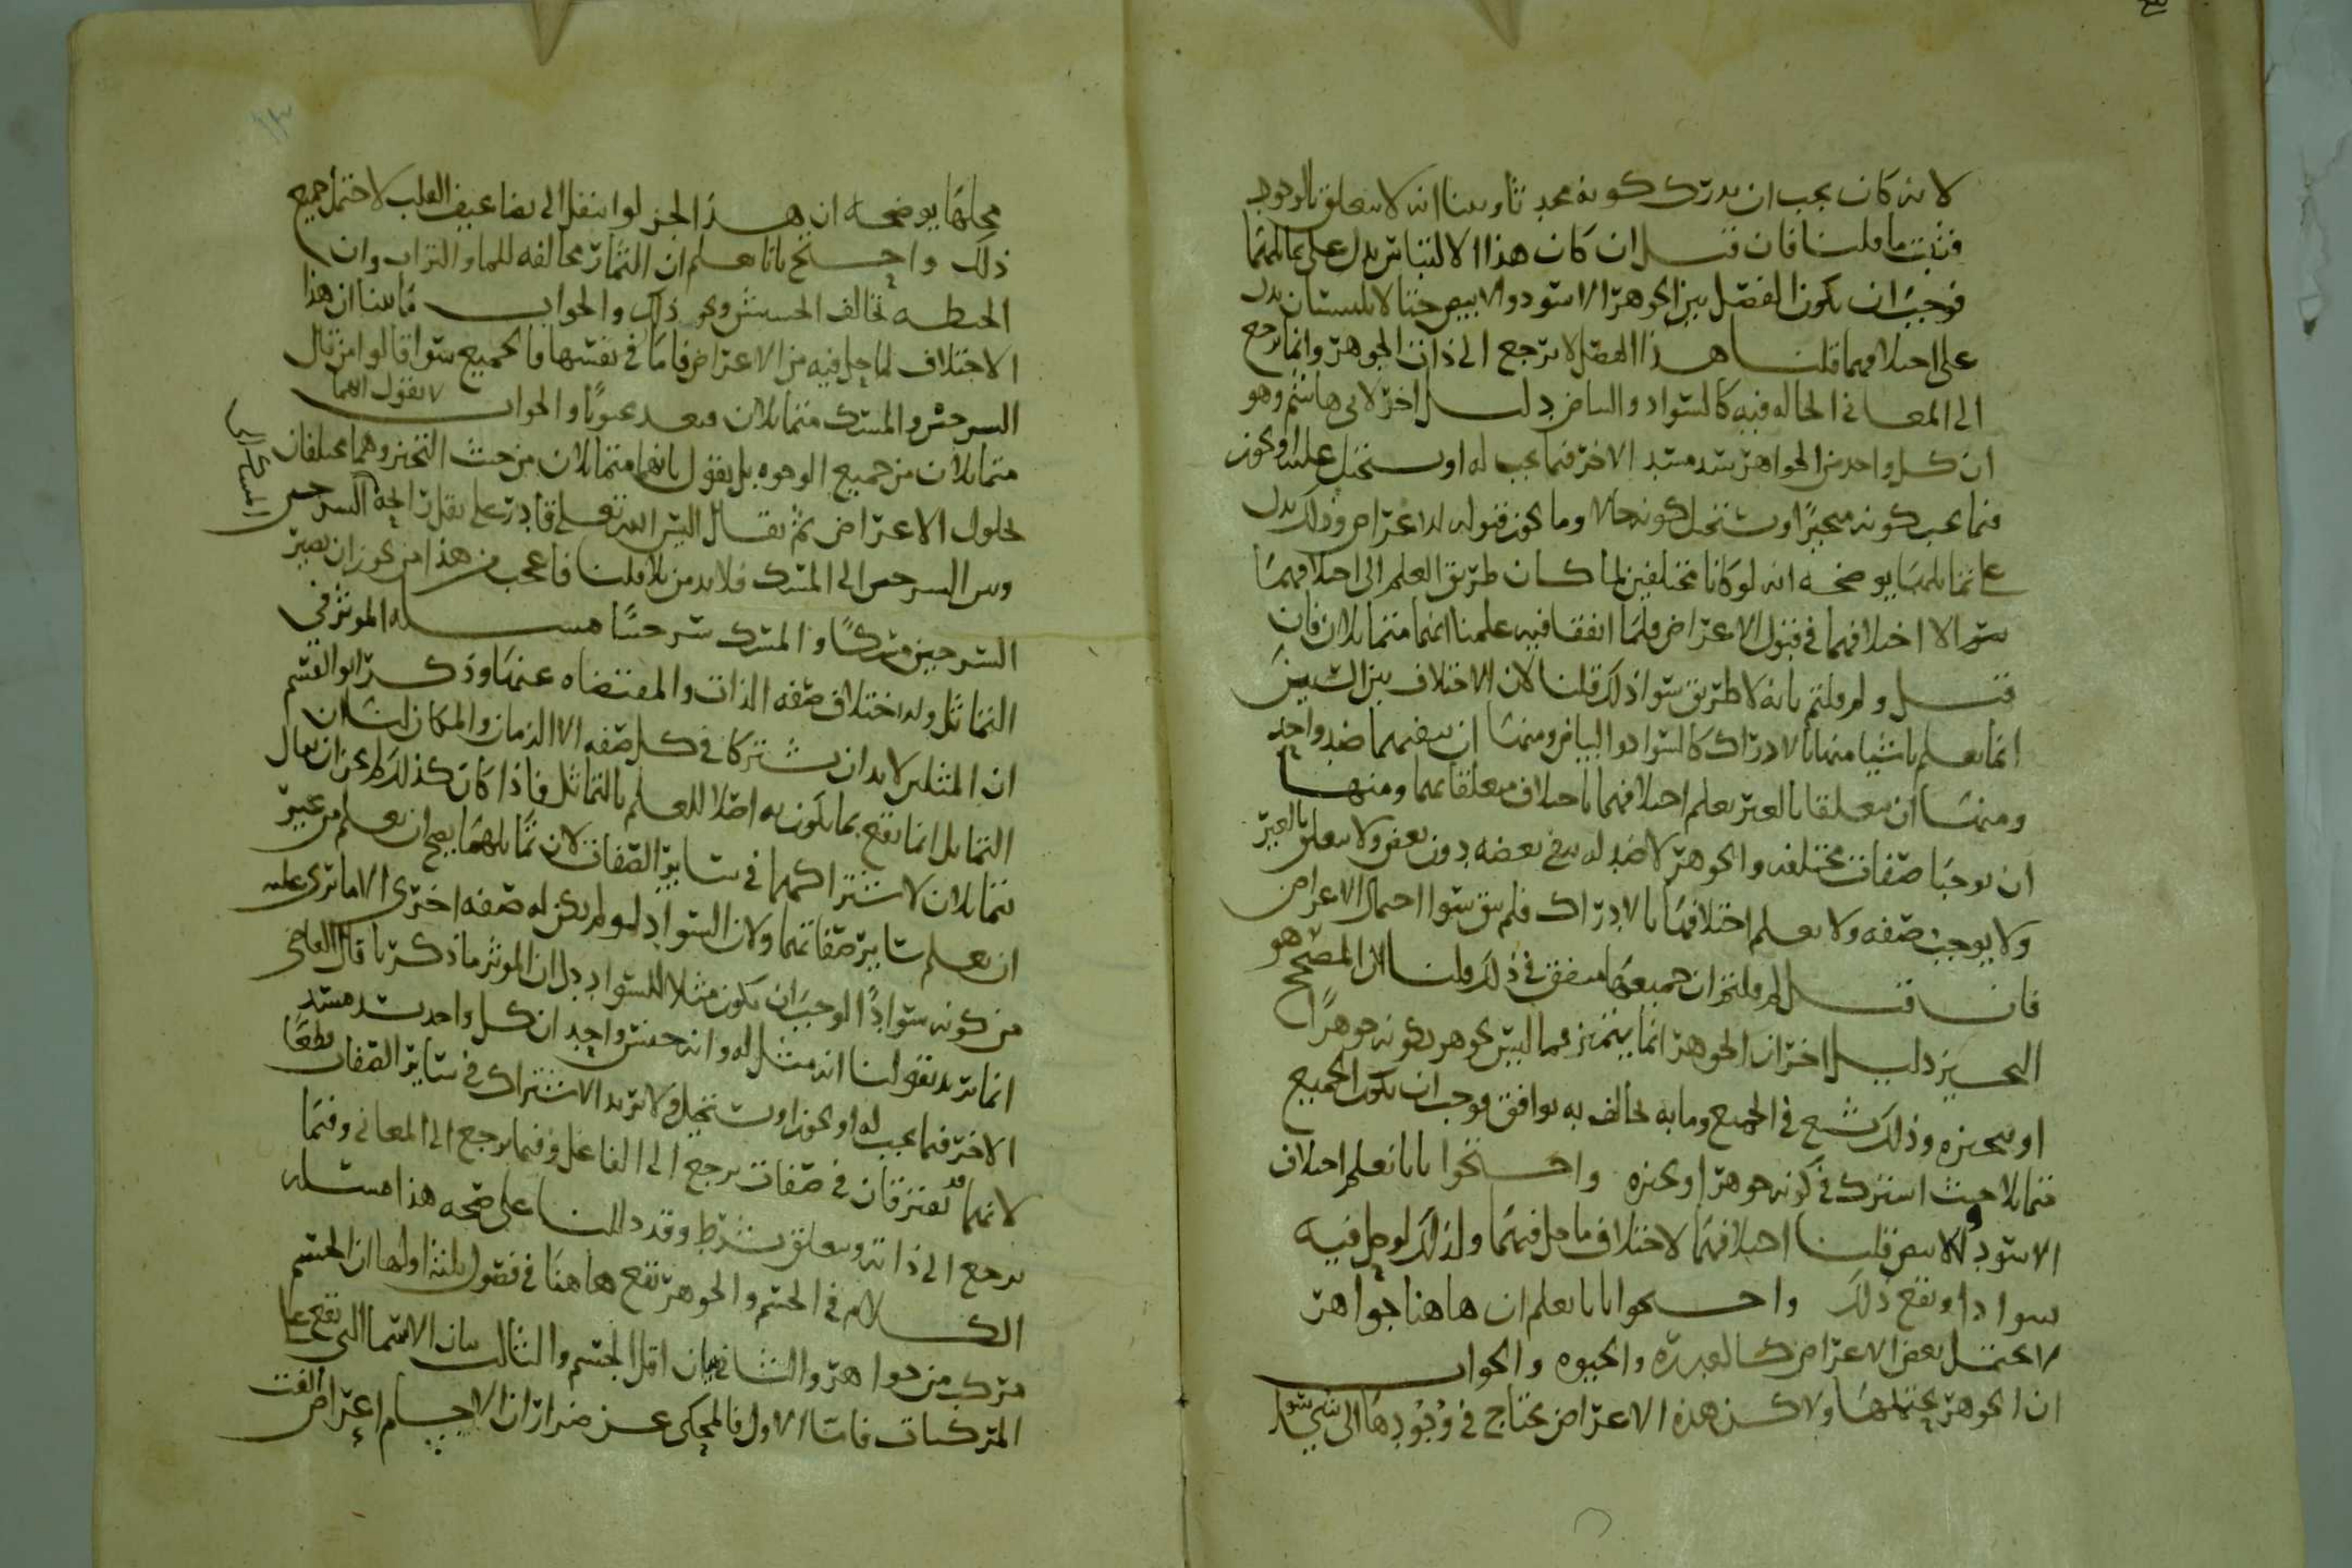 لانه كان يجب ان يدرك كونه محدثا وبينا انه لا يتعلق بالوجود
فثبت ما قلنا فان قيل ان كان هذا الالتباس يدل على تماثلهما
فوجب ان يكون الفصل بين الجوهر الاسود والابيض حتا لا يلتبسان يدل
على اختلافهما قلنا هذا الفصل لا يرجع الى ذات الجوهر وانما يرجع
الى المعاني الحاله فيه كالسواد والبياض دليل اخر لابي هاشم وهو
ان كل واحد من الجواهر يسد مسد الاخر فيما يجب له او يستحيل عليه او يجوز
فيما يجب كونه متحيزا ويستحيل كونه حالا وما يجوز قبوله للاعراض وذلك يدل
على تماثلهما يوضحه انه لو كانا مختلفين لما كان طريق العلم الى اختلافهما
سوا الا اختلافهما في قبول الاعراض فلما اتفقا فيه علمنا انهما متماثلان فان
قيل ولم قلتم بانه لا طريق سوا ذلك قلنا لان الاختلاف بين الشيين
انما يعلم باشيا منها بالادراك كالسواد والبياض ومنها ان ينفيهما ضد واحد
ومنها ان يتعلقا بالغير يعلم اختلافهما باختلاف متعلقاتهما ومنها
ان يوجبا صفات مختلفه والجوهر لا ضد له ينفي بعضه دون بعض ولا يتعلق بالغير
ولا يوجب صفه ولا يعلم اختلافهما بالادراك فلم يبق سوا احتمال الاعراض
فان قيل لم قلتم ان جميعها متفق في ذلك قلنا لان المصحح هو
التحيز دليل اخر ان الجوهر انما يتميز مما ليس بجوهر بكونه جوهرا
او بتحيزه وذلك شايع في الجميع وما به يخالف به يوافق فوجب ان يكون الجميع
متماثلا حيث اشترك في كونه جوهرا وتحيزه واحتجوا بانا نعلم اختلاف
الاسود والابيض قلنا اختلافهما لاختلاف ما حل فيهما ولذلك لو حل فيه
سوادا ويقع ذلك واحتجوا بانا نعلم ان هاهنا جواهر
لا تحتمل بعض الاعراض كالقدرة والحيوه والجواب
ان الجوهر يحتملها ولاكن هذه الاعراض تحتاج في وجودها الى شي سوا
محلها يوضحه ان هذا الجز لو انتقل الى تضاعيف القلب لاحتمل جميع
ذلك واحتج بانا نعلم ان النار مخالفه للما والتراب وان
الحنطه تخالف الحشيش ونحو ذلك والجواب ما بينا ان هذا
الاختلاف لما حل فيه من الاعراض فاما في نفسها فالجميع سوا قالوا من قال
السرجين والمسك متماثلان فيعد معتوها والجواب لا نقول انهما
متماثلان من جميع الوجوه بل نقول بانهما متماثلان من حيث التحيز وهما مختلفان
لحلول الاعراض ثم يقال اليس الله تعلى قادر على نقل رائحه السرجين
المسك الى
وبين السرجين الى المسك فلابد من بلا قلنا فاعجب من هذا من يجوز ان يصير
السرجين مسكا والمسك سرجينا مسله الموثر في
التماثل والاختلاف صفه الذات والمقتضاه عنها وذكر ابو القسم
ان المثلين لابد ان يشتركا في كل صفه الا الزمان والمكان لنا ان
التماثل انما يقع بما يكون به اصلا للعلم بالتماثل فاذا كان كذلك لم يجز ان يقال
يتماثلان لاشتراكهما في سائر الصفات لان تماثلهما يصح ان يعلم من غير
ان يعلم سائر صفاتهما ولان السواد لو لم يكن له صفه اخرى الا ما نرى عليه
من كونه سوادا لوجب ان يكون مثلا للسواد دل ان الموثر ما ذكرنا قال القاضي
انما نريد بقولنا انه مثل له وانه جنس واحد ان كل واحد يسد مسد
الاخر فيما يجب له او يجوز او يستحيل ولا نريد الاشتراك في سائر الصفات قطعا
لانهما قد يفترقان في صفات يرجع الى الفاعل وفيما يرجع الى المعاني وفيما
يرجع الى ذاته ويتعلق بشرط وقد دللنا على صحه هذا مسله
الكلام في الجسم والجوهر يقع هاهنا في فصول ثلثه اولها ان الجسم
مركب من جواهر والثاني بيان اقل الجسم والثالث بيان الاسما التي تقع على
المركبات فاما الاول فالمحكي عن ضرار ان الاجسام اعراض الفت